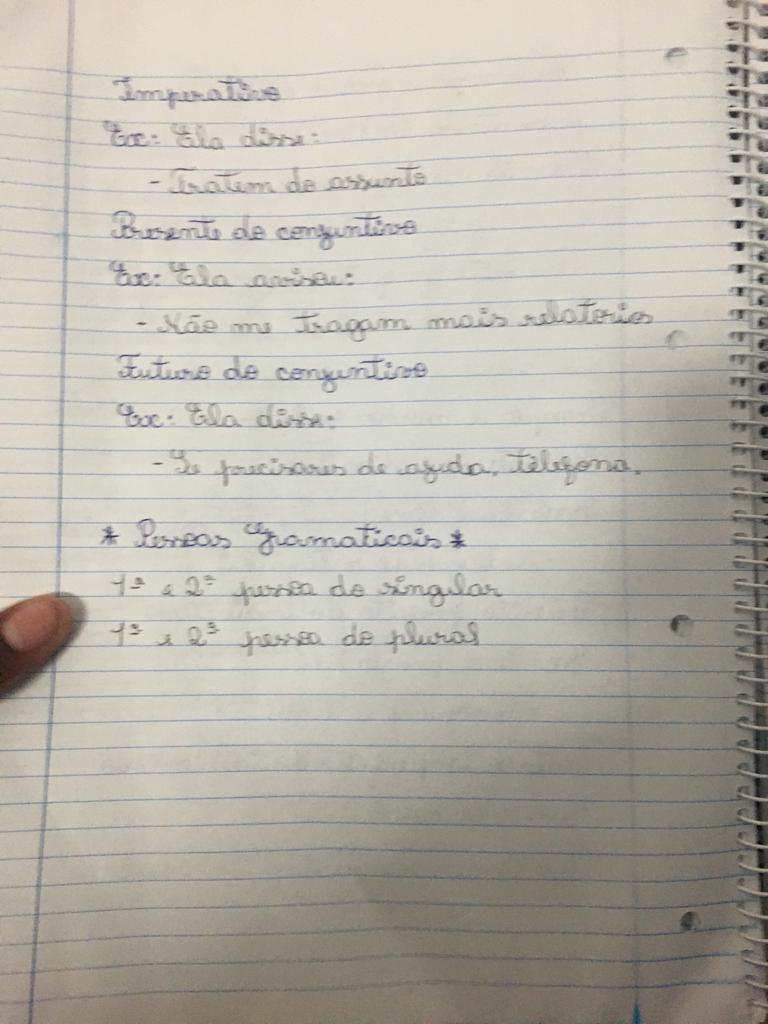 Imperativo
Ex: Ela disse:
- Tratem do assunto
Presente do conjuntivo
Ex: Ela avisou:
- Não me tragam mais relatorios
Futuro do conjuntivo
Ex: Ela disse:
- Se precisares de ajuda, telefona.
* Pessoas Gramaticais *
1ª e 2ª pessoa do singular
1ª e 2ª pessoa do plural